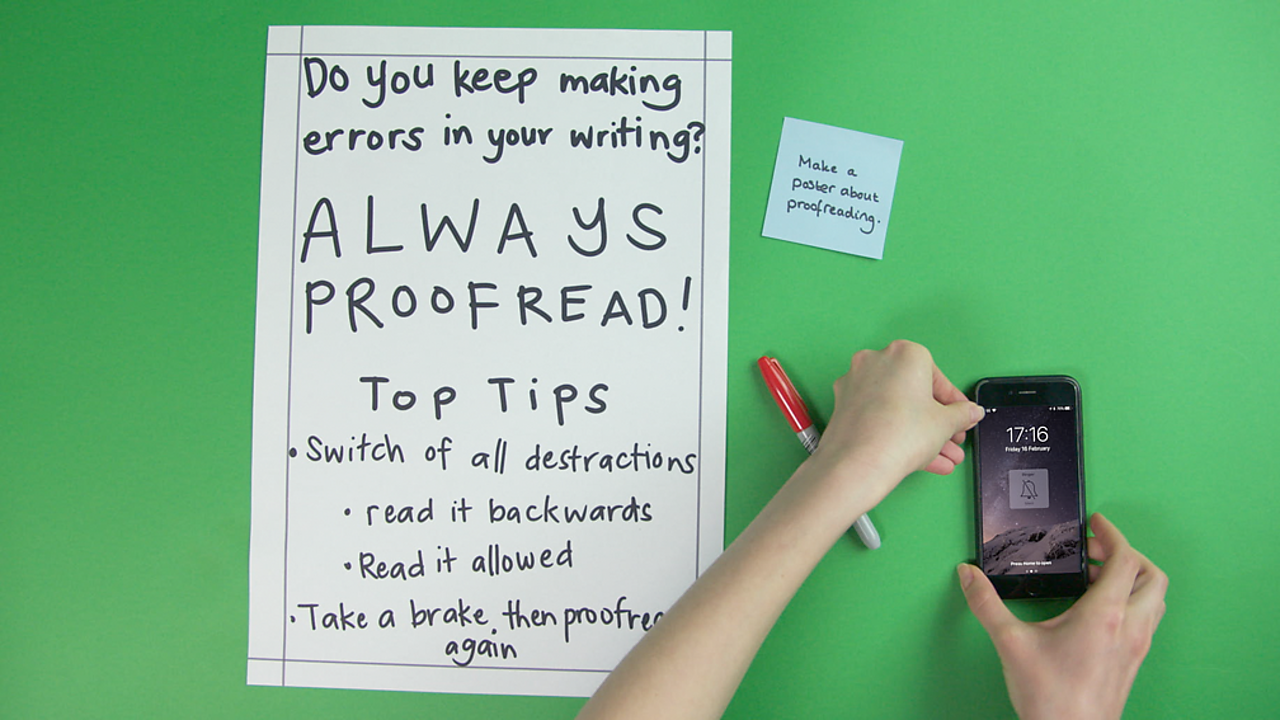 Do you keep making
errors in your writing?
ALWAYS
PROOFREAD!
Top Tips
• Switch of all destractions
• read it backwards
• Read it allowed
• Take a brake then
again
Make a
poster about
proofreading.
17:16
Friday 16 February
Press home to open